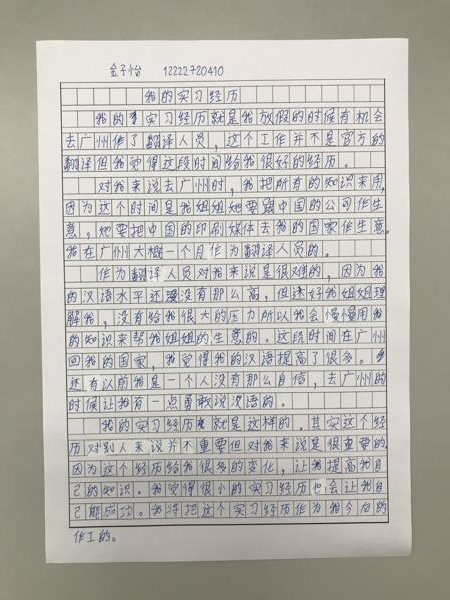 金子怡 12222720410
我的实习经历
我的实习经历就是我放假的时候有机会
去广州作了翻译人员，这个工作并不是官方的
翻译但我觉得这段时间给我很好的经历。
对我来说去广州时，我把所有的知识来用，
因为这个时间是我姐姐她要跟中国的公司作生
意，她要把中国的印刷媒体去我的国家作生意。
我在广州大概一个月作为翻译人员的。
作为翻译人员对我来说是很难的，因为我
的汉语水平还没有那么高，但还好我姐姐理
解我，没有给我很大的压力所以我会慢慢用我
的知识来帮我姐姐的生意的。这段时间在广州
回我的国家，我觉得我的汉语提高了很多。
还有以前我是一个人没有那么自信，去广州的
时候让我有一点勇敢说汉语的。
我的实习经历就是这样的，其实这个经
历对别人来说并不重要但对我来说是很重要的
因为这个经历给我很多的变化，让我提高我自
己的知识。我觉得很小的实习经历也会让我自
己能成功。我将把这个实习经历作为我今向的
作工的。